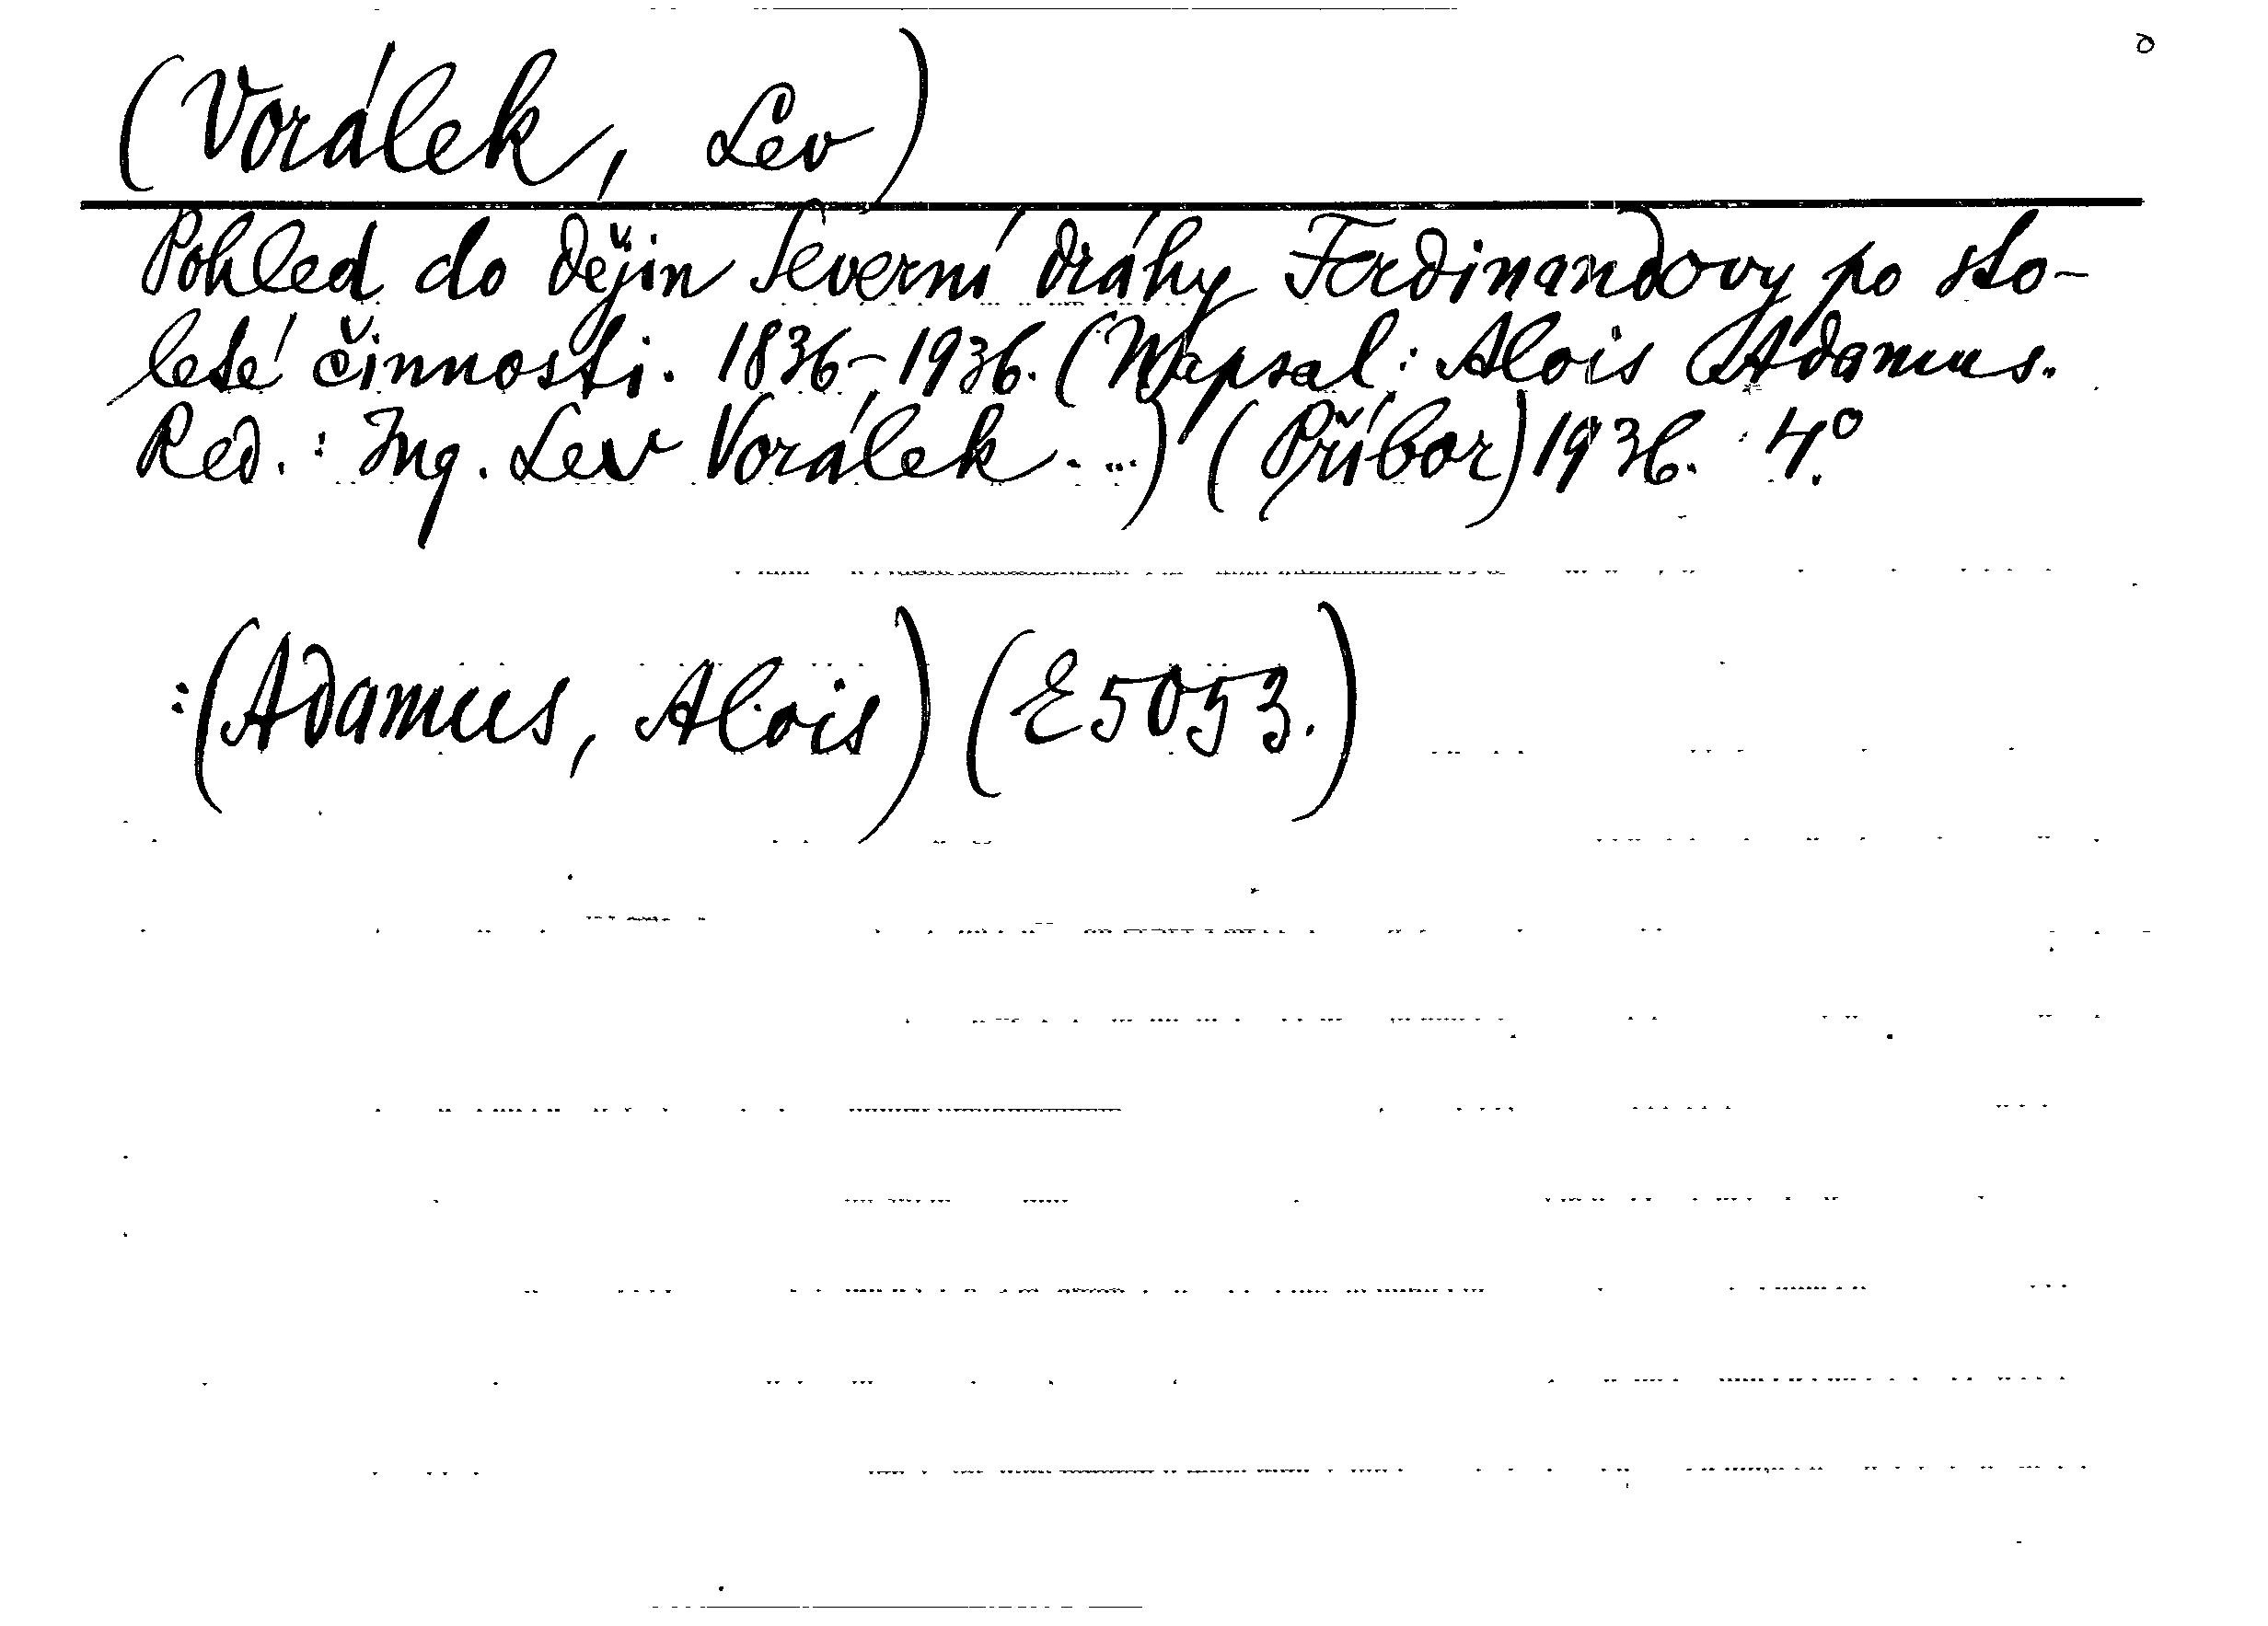 (Vorálek, Lev)
Pohled do dějin Severní dráhy Ferdinandovy po sto-
leté činnosti. 1836-1936. (Napsal: Alois Adamus.
Red.: Ing. Lev Vorálek...) (Příbor) 1936. 4°.
:(Adamus, Alois) (E5053.)